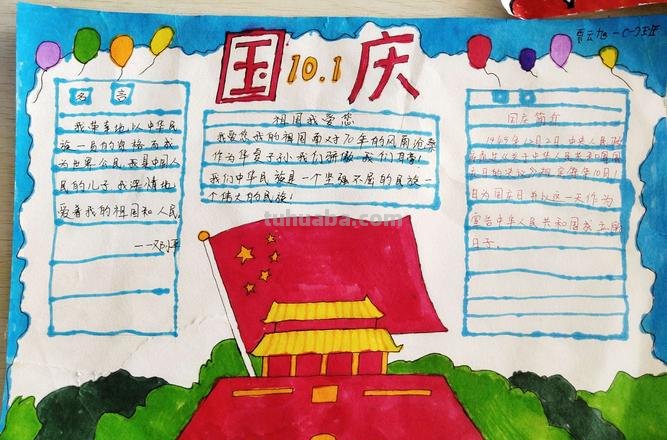 国庆
10.1
名言
我荣幸地以中华民
族一员的资格而成
为世界公民我是中国人
民的儿子我深情地
爱着我的祖国和人民
——邓小平
祖国我爱您
我爱您我的祖国面对70年的风雨沧桑
作为华夏子孙我们骄傲我们自豪!
我们中华民族是一个坚强不屈的民族一
个伟大的民族!
国庆简介
1949年12月2日中央人民政
每年10月1
日为国庆日并以这一天作为
宣告中华人民共和国成立的
日子。
tuhuaba.com